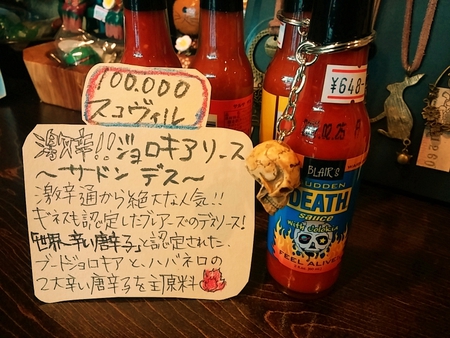 100.000
スコヴィル
激辛!!ジョロキアソース
〜サドン デス〜
激辛通から絶大な人気!!
ギネスも認定したブレアーズのデスソース!
世界一辛い唐辛子と認定された
ブートジョロキアと、ハバネロの
2大辛い唐辛子を主原料
¥648
02.25
BLAIR'S
SUDDEN
DEATH
sauce
FEEL ALIVE